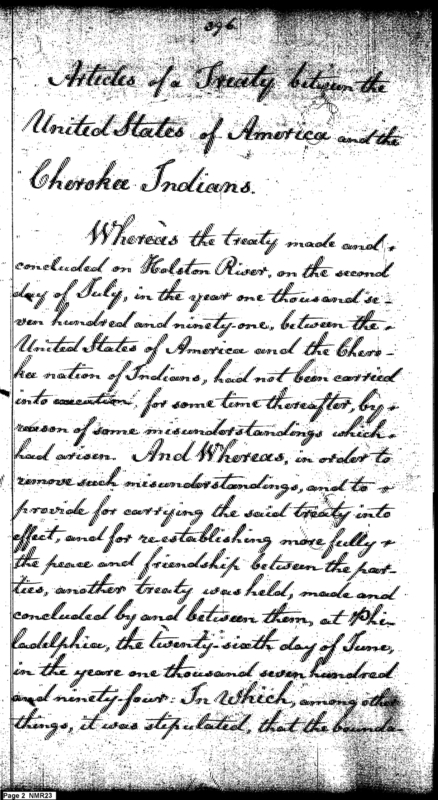 396
Articles of a Treaty between the
United States of America and the
Cherokee Indians.
Whereas the treaty made and
concluded on Holston River, on the second
day of July, in the year one thousand se-
ven hundred and ninety-one, between the
United States of America and the Chero-
kee nation of Indians, had not been carried
into execution, for some time thereafter, by
reason of some misunderstandings which
had arisen. And Whereas, in order to
remove such misunderstandings, and to
provide for carrying the said treaty into
effect, and for re-establishing more fully
the peace and friendship between the par-
ties, another treaty was held, made and
concluded by and between them, at Phi-
ladelphia, the twenty-sixth day of June,
in the yeare one thousand seven hundred
and ninety-four: In Which, among other
things, it was stipulated, that the bounda-
Page 2 NMR23